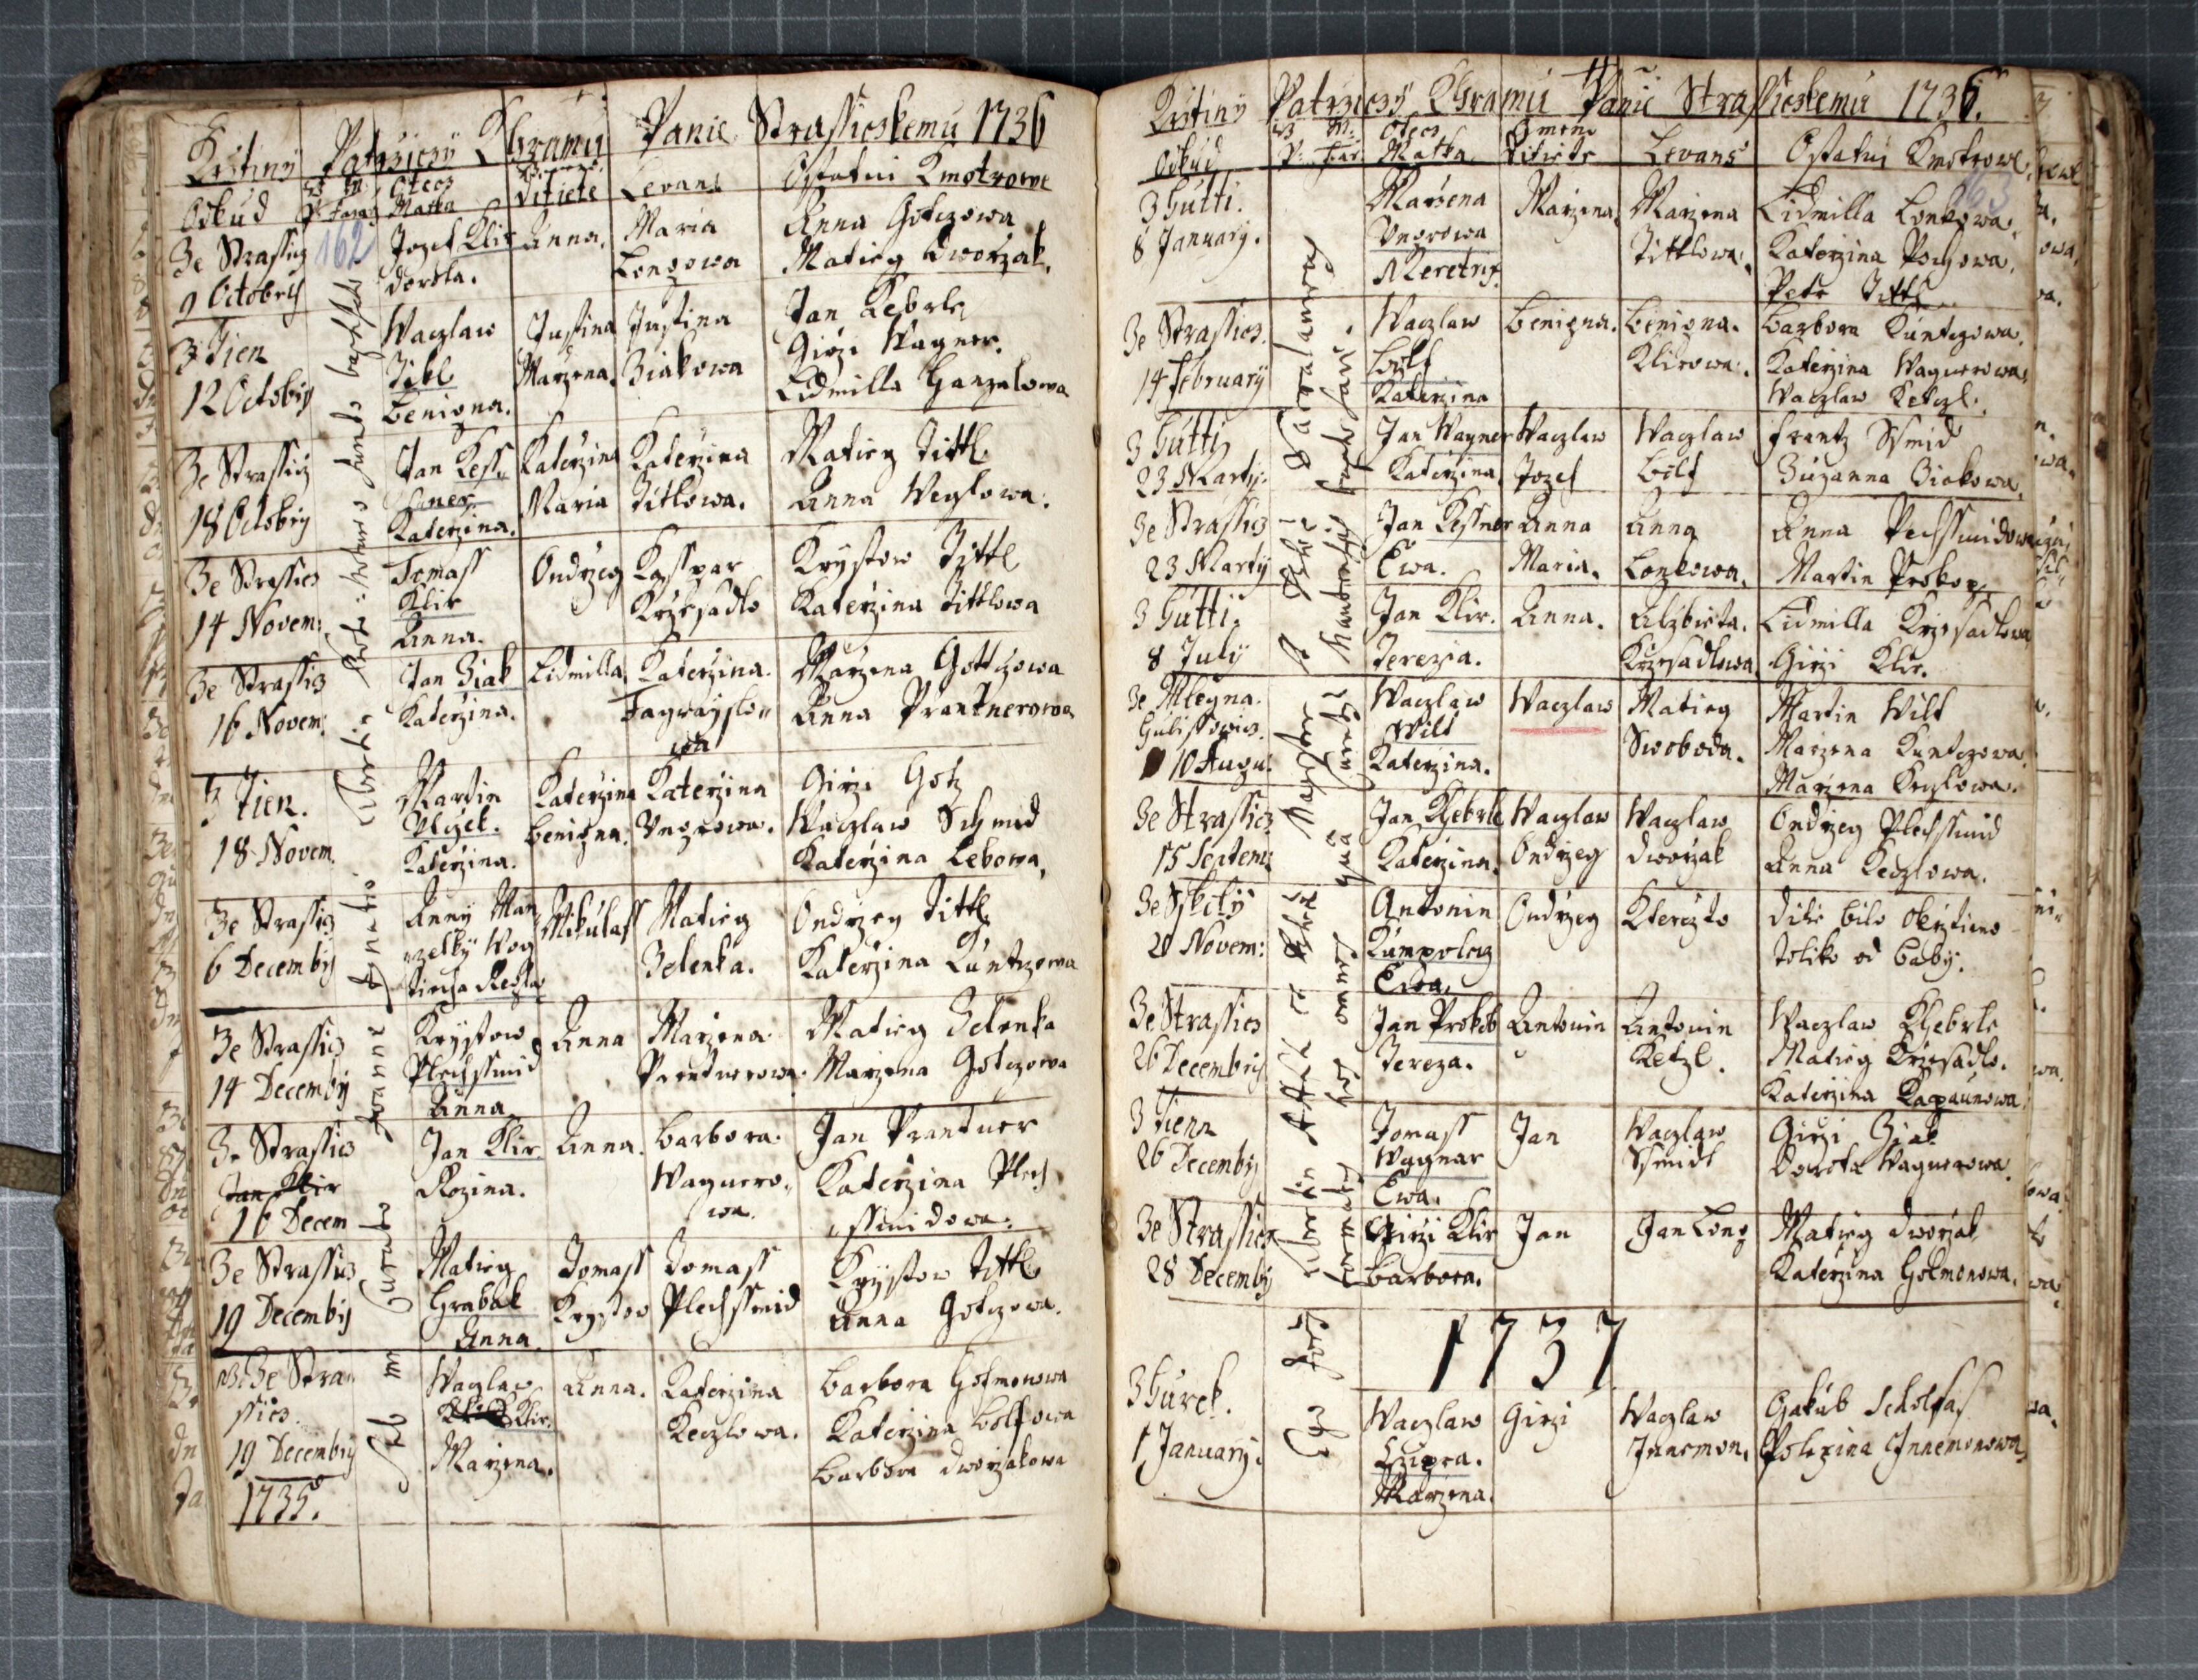 Krstiny Patrziczy Chramu Panie Strassicskemu 1736
Odkud
Otecz
Matka
Ditiete
Levans
Ostatni Kmotrowe
162
Ze Strassicz
9 Octobris
Jozef Klir
Dorota.
Anna.
Maria
Longowa
Anna Gotczowa
Matieg Dworzak.
Z Tien
12 Octobris
Waczlaw
Zikl
Benigna.
Justina
Marzena.
Justina
Ziakowa
Jan Kebrle
Girzi Wagner.
Lidmilla Hanzalowa
Ze Strassicz
18 Octobris
Jan Kess„
lner
Katerzina.
Katerzina
Maria
Katerzina
Tittlowa.
Matieg Tittl.
Anna Weglowa.
Ze Strassics
14 Novem:
Tomass
Klir
Anna.
Ondrzeg
Kasspar
Krzesadlo
Krystow Tittl
Katerzina Tittlowa
Ze Strassicz
16 Novem:
Jan Ziak
Katerzina.
Lidmilla
Katerzina.
Marzena Gottczowa
Anna Prantnerowa
Z Tien.
18 Novem.
Martin
Plzek.
Katerzina.
Katerzina
Benigna.
Katerzina
Ungrowa.
Girzi Gotz
Waczlaw Schmid
Katerzina Lebowa,
Ze Strassicz
6 Decembris
Anny Man„
rzelky Wog„
Mikulass
Matieg
Zelenka.
Ondrzeg Tittl
Katerzina Kuntzowa
Ze Strassicz
14 Decembris
Krystow
Plechssmid
Anna
Anna
Marzena
Prantnerowa.
Matieg Zelenka
Marzena Gotczowa
Ze Strassics
Jan Klir
16 Decem
Jan Klir
Rozina.
Anna.
Barbora.
Wagnero„
wa.
Jan Prantner
Katerzina Plech„
ssmidowa.
Ze Strassics
19 Decembris
Matieg
Hrabak
Anna
Tomass
Krystow
Tomass
Plechssmid
Krystow Tittl
Anna Gotczowa.
Ze Stra„
ssics.
19 Decembris
1735.
Waczlaw
Klir.
Marzena.
Anna.
Katerzina
Keczlowa.
Barbora Hofmonowa
Katerzina Bolfowa
Barbora Dworzakowa
Krstiny Patrziczy Chramu Panie Strassicskemu 1736.
Odkud
Otecz
Matka
Gmeno
Ditiete
Levans
Ostatni Kmotrowe
163
Z Hutti.
8 January.
Marzena
Ungrowa
Meretrix.
Marzena.
Marzena
Tittlowa.
Lidmilla Lonkowa.
Katerzina Poczowa.
Petr Tittl
Ze Strassics.
14 February
Waczlaw
Bolf
Katerzina
Benigna.
Benigna.
Klirowa.
Barbora Kuntczowa.
Katerzina Wagnerowa
Waczlaw Ketzl.
Z Hutti
23 Marty.
Jan Wagner
Katerzina.
Waczlaw
Jozef
Waczlaw
Bolf
Frantz Ssmid
Zuzanna Ziakowa
Ze Strassics
23 Marty
Jan Kessner
Ewa.
Anna
Maria.
Anna
Lonkowa.
Anna Plechssmidowa
Martin Prokop
Z Hutti.
8 July
Jan Klir.
Terezia.
Anna.
Alzbieta.
Krzesadlowa
Lidmilla Krzesadlowa
Girzi Klir.
Ze Mlegna.
10 Augu:
Waczlaw
Wilt
Katerzina.
Waczlaw
Matieg
Swoboda.
Martin Wilt
Marzena Kuntczowa
Marzena Kryslowa.
Ze Strassics
15 Septem:
Jan Chebrle
Katerzina.
Waczlaw
Ondrzeg
Waczlaw
Dworzak
Ondrzeg Plechssmid
Anna Keczlowa.
Antonin
Kumpolcz
Ewa.
20 Novem:
Ondrzeg
Kterezto
ditie bilo okrztieno
toliko od baby.
Ze Strassics
26 Decembris
Jan Prokob
Tereza.
Antonin
Antonin
Ketzl.
Waczlaw Chebrle
Matieg Krzesadlo.
Katerzina Kapaunowa
Z Tienn
26 Decembris
Tomass
Wagnar
Ewa.
Jan
Waczlaw
Ssmidt
Girzi Ziak
Dorota Wagnerowa
Ze Strassics
28 Decembris
Girzi Klir
Barbora.
Jan
Jan Long
Matieg Dworzak
Katerzina Hofmonowa.
1737
Z Hurek.
1 January.
Waczlaw
Marzena.
Girzi
Waczlaw
Innemon.
Gakub Scholfas
Polexina Innemonowa